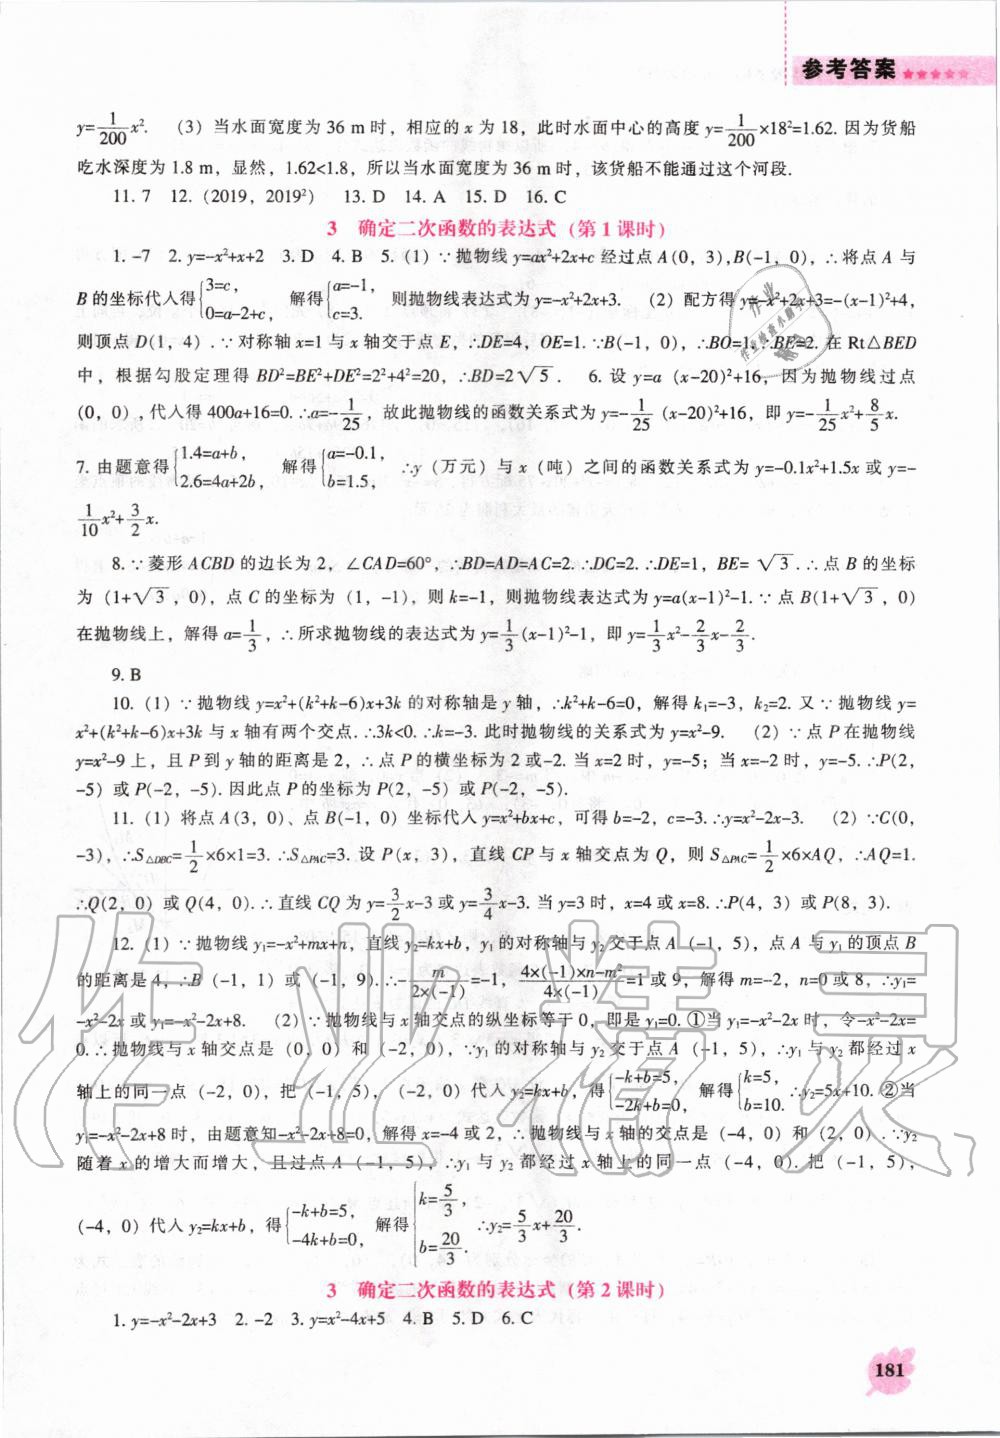 参考答案★★★★★
y=1/200x². (3) 当水面宽度为 36 m 时，相应的 x 为 18，此时水面中心的高度 y=1/200×18²=1.62. 因为货船
吃水深度为 1.8 m，显然，1.62<1.8，所以当水面宽度为 36 m 时，该货船不能通过这个河段.
11. 7 12. (2019，2019²) 13. D 14. A 15. D 16. C
3 确定二次函数的表达式（第 1 课时）
1. -7 2. y=-x²+x+2 3. D 4. B 5. (1) ∵抛物线 y=ax²+2x+c 经过点 A(0，3),B(-1，0)，∴将点 A 与
B 的坐标代入得{3=c，0=a-2+c， 解得{a=-1，c=3. 则抛物线表达式为 y=-x²+2x+3. (2) 配方得 y=-x²+2x+3=-(x-1)²+4，
则顶点 D(1，4) . ∵对称轴 x=1 与 x 轴交于点 E，∴DE=4，OE=1. ∵B(-1，0)，∴BO=1，∴BE=2. 在 Rt△BED
中，根据勾股定理得 BD²=BE²+DE²=2²+4²=20，∴BD=2√5 . 6. 设 y=a (x-20)²+16，因为抛物线过点
(0，0)，代入得 400a+16=0. ∴a=-1/25，故此抛物线的函数关系式为 y=-1/25 (x-20)²+16，即 y=-1/25x²+8/5x.
7. 由题意得{1.4=a+b，2.6=4a+2b， 解得{a=-0.1，b=1.5， ∴y（万元）与 x（吨）之间的函数关系式为 y=-0.1x²+1.5x 或 y=-
1/10x²+3/2x.
8. ∵菱形 ACBD 的边长为 2，∠CAD=60°，∴BD=AD=AC=2. ∴DC=2. ∴DE=1，BE= √3 . ∴点 B 的坐标
为 (1+√3 ，0)，点 C 的坐标为 (1，-1)，则 k=-1，则抛物线表达式为 y=a(x-1)²-1. ∵点 B(1+√3 ，0)
在抛物线上，解得 a=1/3，∴所求抛物线的表达式为 y=1/3(x-1)²-1，即 y=1/3x²-2/3x-2/3.
9. B
10. (1) ∵抛物线 y=x²+(k²+k-6)x+3k 的对称轴是 y 轴，∴k²+k-6=0，解得 k₁=-3，k₂=2. 又∵抛物线 y=
x²+(k²+k-6)x+3k 与 x 轴有两个交点. ∴3k<0. ∴k=-3. 此时抛物线的关系式为 y=x²-9. (2) ∵点 P 在抛物线
y=x²-9 上，且 P 到 y 轴的距离是 2，∴点 P 的横坐标为 2 或-2. 当 x=2 时，y=-5；当 x=-2 时，y=-5. ∴P(2，
-5) 或 P(-2，-5). 因此点 P 的坐标为 P(2，-5) 或 P(-2，-5).
11. (1) 将点 A(3，0)、点 B(-1，0) 坐标代入 y=x²+bx+c，可得 b=-2，c=-3. ∴y=x²-2x-3. (2) ∵C(0，
-3)，∴S△DBC=1/2×6×1=3. ∴S△PAC=3. 设 P(x，3)，直线 CP 与 x 轴交点为 Q，则 S△PAC=1/2×6×AQ，∴AQ=1.
∴Q(2，0) 或 Q(4，0). ∴直线 CQ 为 y=3/2x-3 或 y=3/4x-3. 当 y=3 时，x=4 或 x=8. ∴P(4，3) 或 P(8，3).
12. (1) ∵抛物线 y₁=-x²+mx+n，直线 y₂=kx+b，y₁ 的对称轴与 y₂ 交于点 A (-1，5)，点 A 与 y₁ 的顶点 B
的距离是 4，∴B (-1，1) 或 (-1，9). ∴-m/2×(-1)=-1，4×(-1)×n-m²/4×(-1)=1 或 9，解得 m=-2，n=0 或 8，∴y₁=
-x²-2x 或 y₁=-x²-2x+8. (2) ∵抛物线与 x 轴交点的纵坐标等于 0，即是 y₁=0. ①当 y₁=-x²-2x 时，令-x²-2x=
0. ∴抛物线与 x 轴交点是 (0，0) 和 (-2，0)，∵y₁ 的对称轴与 y₂ 交于点 A (-1，5)，∴y₁ 与 y₂ 都经过 x
轴上的同一点 (-2，0)，把 (-1，5)，(-2，0) 代入 y₂=kx+b，得{-k+b=5，-2k+b=0， 解得{k=5，b=10. ∴y₂=5x+10. ②当
y₁=-x²-2x+8 时，由题意知-x²-2x+8=0，解得 x=-4 或 2，∴抛物线与 x 轴的交点是 (-4，0) 和 (2，0) . ∵y₂
随着 x 的增大而增大，且过点 A (-1，5)，∴y₁ 与 y₂ 都经过 x 轴上的同一点 (-4，0). 把 (-1，5)，
(-4，0) 代入 y₂=kx+b，得{-k+b=5，-4k+b=0， 解得{k=5/3，b=20/3. ∴y₂=5/3x+20/3.
3 确定二次函数的表达式（第 2 课时）
1. y=-x²-2x+3 2. -2 3. y=x²-4x+5 4. B 5. D 6. C
181
作业精灵